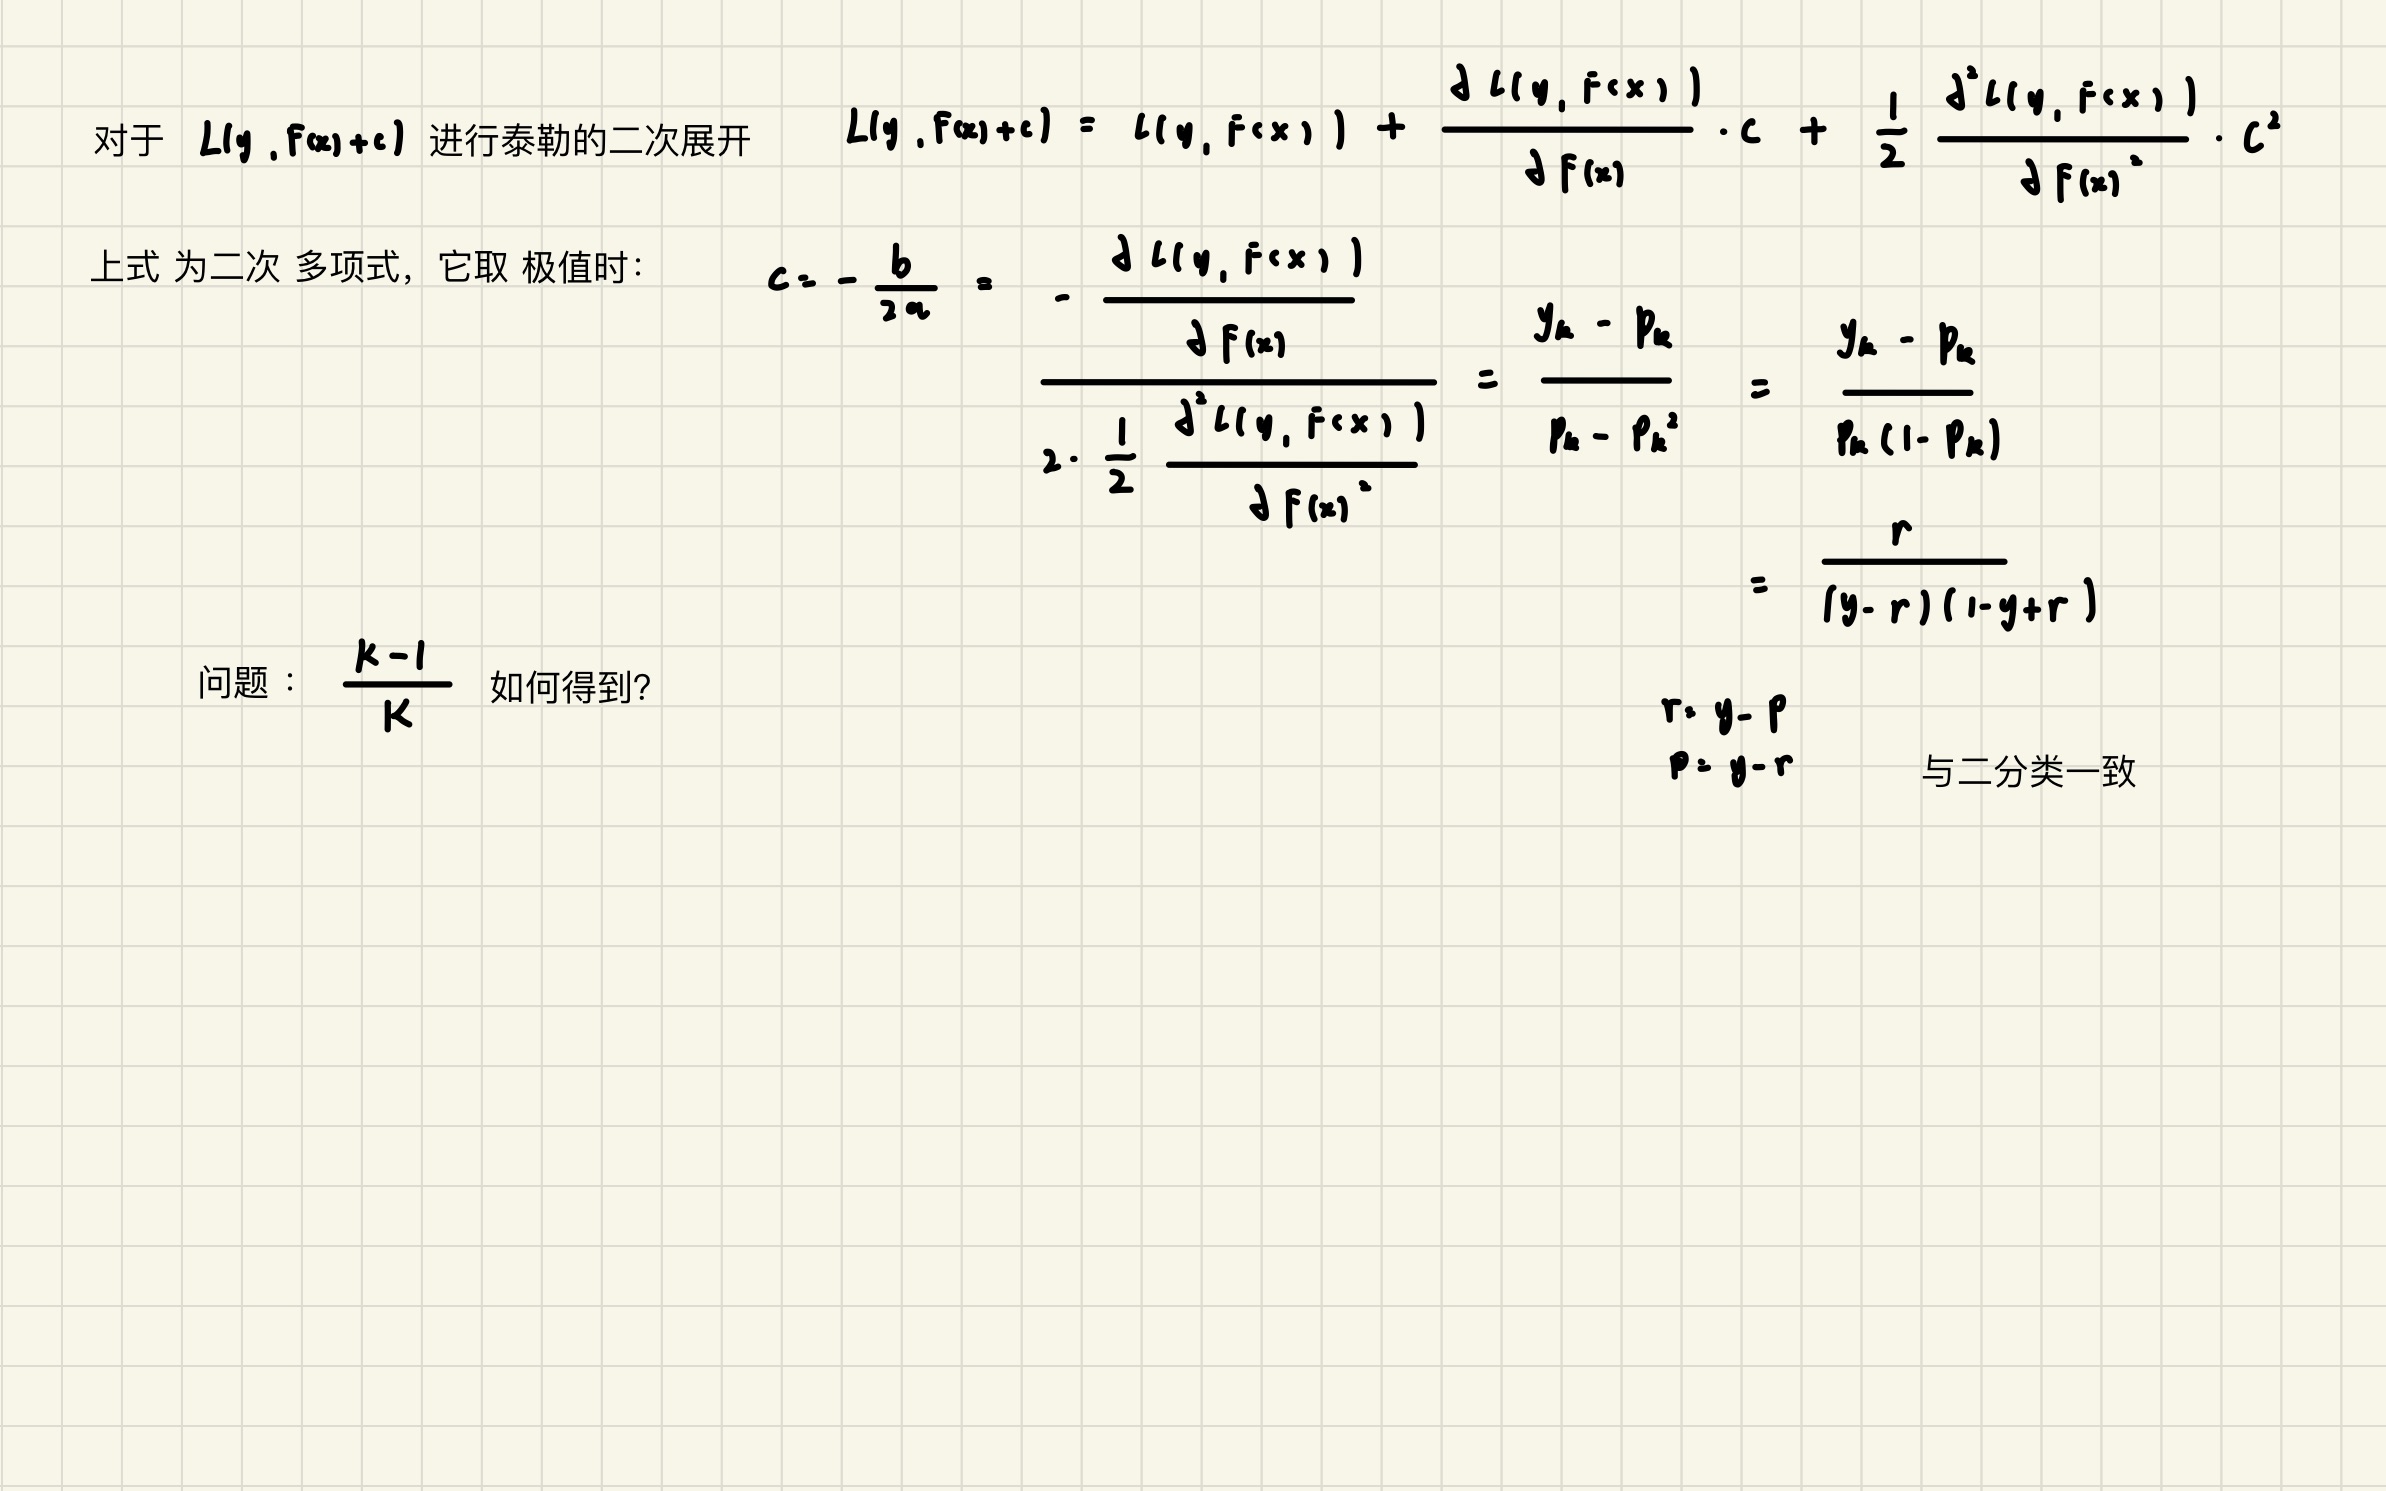 对于 L(y, F(x)+c) 进行泰勒的二次展开 L(y, F(x)+c) = L(y, F(x)) + ∂L(y, F(x)) / ∂F(x) · c + 1/2 ∂²L(y, F(x)) / ∂F(x)² · c²
上式 为二次 多项式，它取 极值时： c = - b / 2a = (- ∂L(y, F(x)) / ∂F(x)) / (2 · 1/2 ∂²L(y, F(x)) / ∂F(x)²) = (yₖ - pₖ) / (pₖ - pₖ²) = (yₖ - pₖ) / (pₖ(1 - pₖ))
= r / ((y - r)(1 - y + r))
问题： (K - 1) / K 如何得到？
r = y - p
p = y - r 与二分类一致